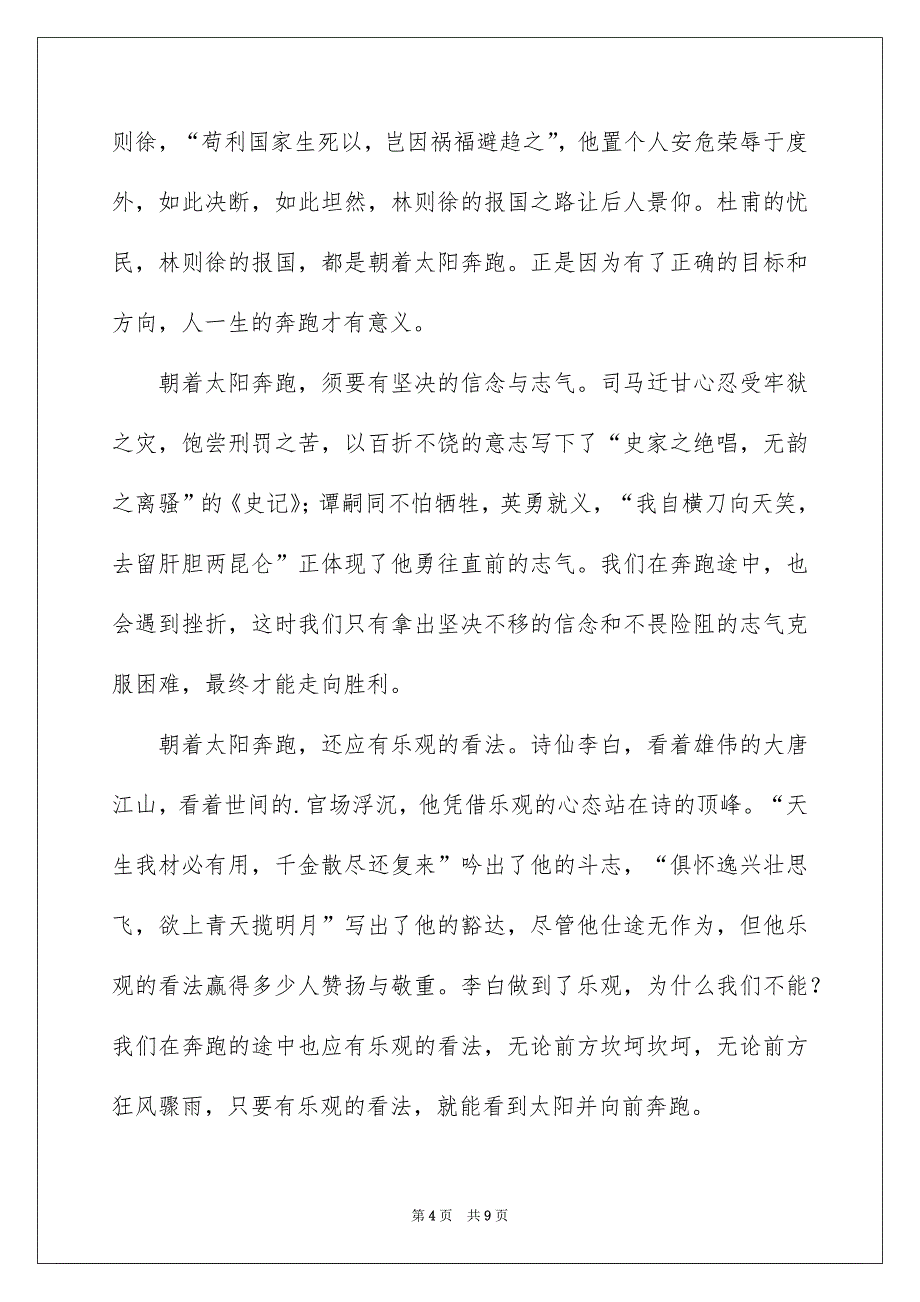 则徐，“苟利国家生死以，岂因祸福避趋之”，他置个人安危荣辱于度
外，如此决断，如此坦然，林则徐的报国之路让后人景仰。杜甫的忧
民，林则徐的报国，都是朝着太阳奔跑。正是因为有了正确的目标和
方向，人一生的奔跑才有意义。
朝着太阳奔跑，须要有坚决的信念与志气。司马迁甘心忍受牢狱
之灾，饱尝刑罚之苦，以百折不饶的意志写下了“史家之绝唱，无韵
之离骚”的《史记》；谭嗣同不怕牺牲，英勇就义，“我自横刀向天笑，
去留肝胆两昆仑”正体现了他勇往直前的志气。我们在奔跑途中，也
会遇到挫折，这时我们只有拿出坚决不移的信念和不畏险阻的志气克
服困难，最终才能走向胜利。
朝着太阳奔跑，还应有乐观的看法。诗仙李白，看着雄伟的大唐
江山，看着世间的.官场浮沉，他凭借乐观的心态站在诗的顶峰。“天
生我材必有用，千金散尽还复来”吟出了他的斗志，“俱怀逸兴壮思
飞，欲上青天揽明月”写出了他的豁达，尽管他仕途无作为，但他乐
观的看法赢得多少人赞扬与敬重。李白做到了乐观，为什么我们不能？
我们在奔跑的途中也应有乐观的看法，无论前方坎坷坎坷，无论前方
狂风骤雨，只要有乐观的看法，就能看到太阳并向前奔跑。
第4页 共9页